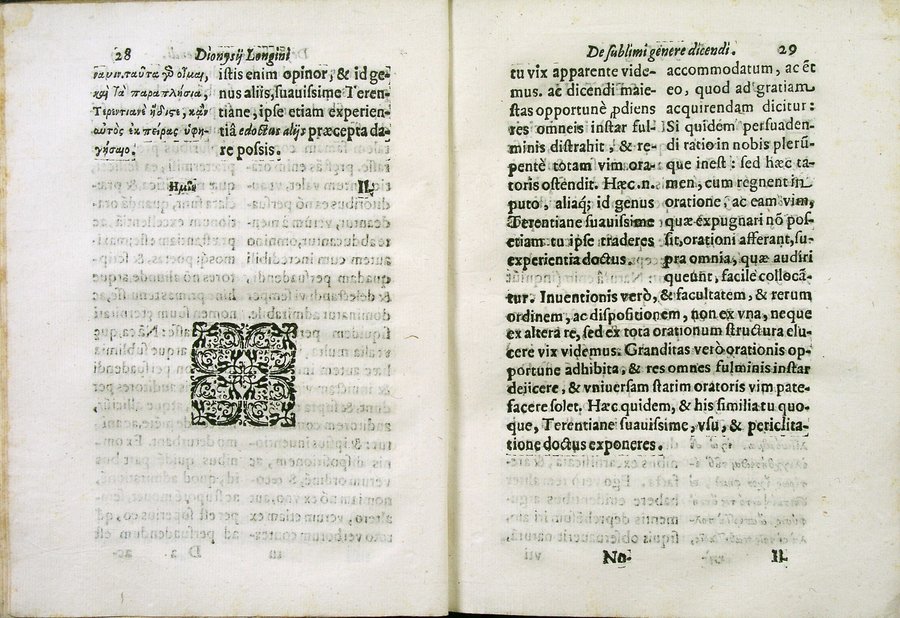 28 Dionysij Longini
ναυιν. ταῦτα γὸ οἶμαι,
καὶ τὰ παραπλήσια,
Τερεντιανὲ ἥδιςε, κἂν
αὐτὸς ἐκ πείρας ὑφη-
γήσαιο.
istis enim opinor, & id ge-
nus aliis, suauissime Teren-
tiane, ipse etiam experien-
tiâ edoctus alijs præcepta da-
re possis.
II.
De sublimi genere dicendi. 29
tu vix apparente vide-
mus. ac dicendi maie-
stas opportunè ꝓdiens
res omneis instar ful-
minis distrahit, & re-
pentè totam vim ora-
toris ostendit. Hæc. n.
puto, aliaq; id genus
Terentiane suauissime
etiam tu ipse traderes
experientia doctus.
accommodatum, ac ẽt
eo, quod ad gratiam
acquirendam dicitur:
Si quidem persuaden-
di ratio in nobis plerũ-
que inest: sed hæc ta-
men, cum regnent in
oratione, ac eam vim,
quæ expugnari nõ pos-
sit, orationi afferant, su-
pra omnia, quæ audiri
queunt, facile collocã-
tur. Inuentionis verò, & facultatem, & rerum
ordinem, ac dispositionem, non ex vna, neque
ex altera re, sed ex tota orationum structura elu-
cere vix videmus. Granditas verò orationis op-
portune adhibita, & res omnes fulminis instar
dejicere, & vniuersam statim oratoris vim pate-
facere solet. Hæc quidem, & his similia tu quo-
que, Terentiane suauissime, vsu, & periclita-
tione doctus exponeres.
No- II.